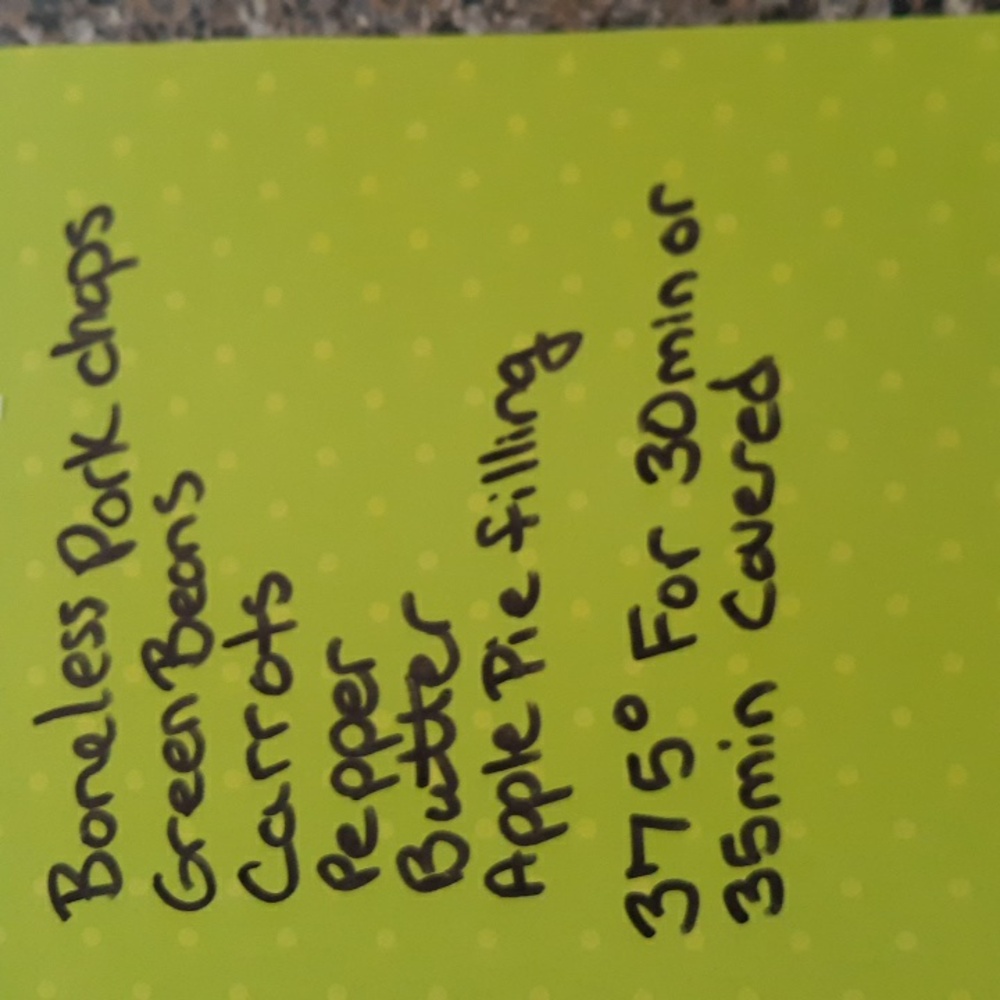 Boneless Pork chops
Green Beans
Carrots
Pepper
Butter
Apple Pie filling
375° For 30min or
35min Covered